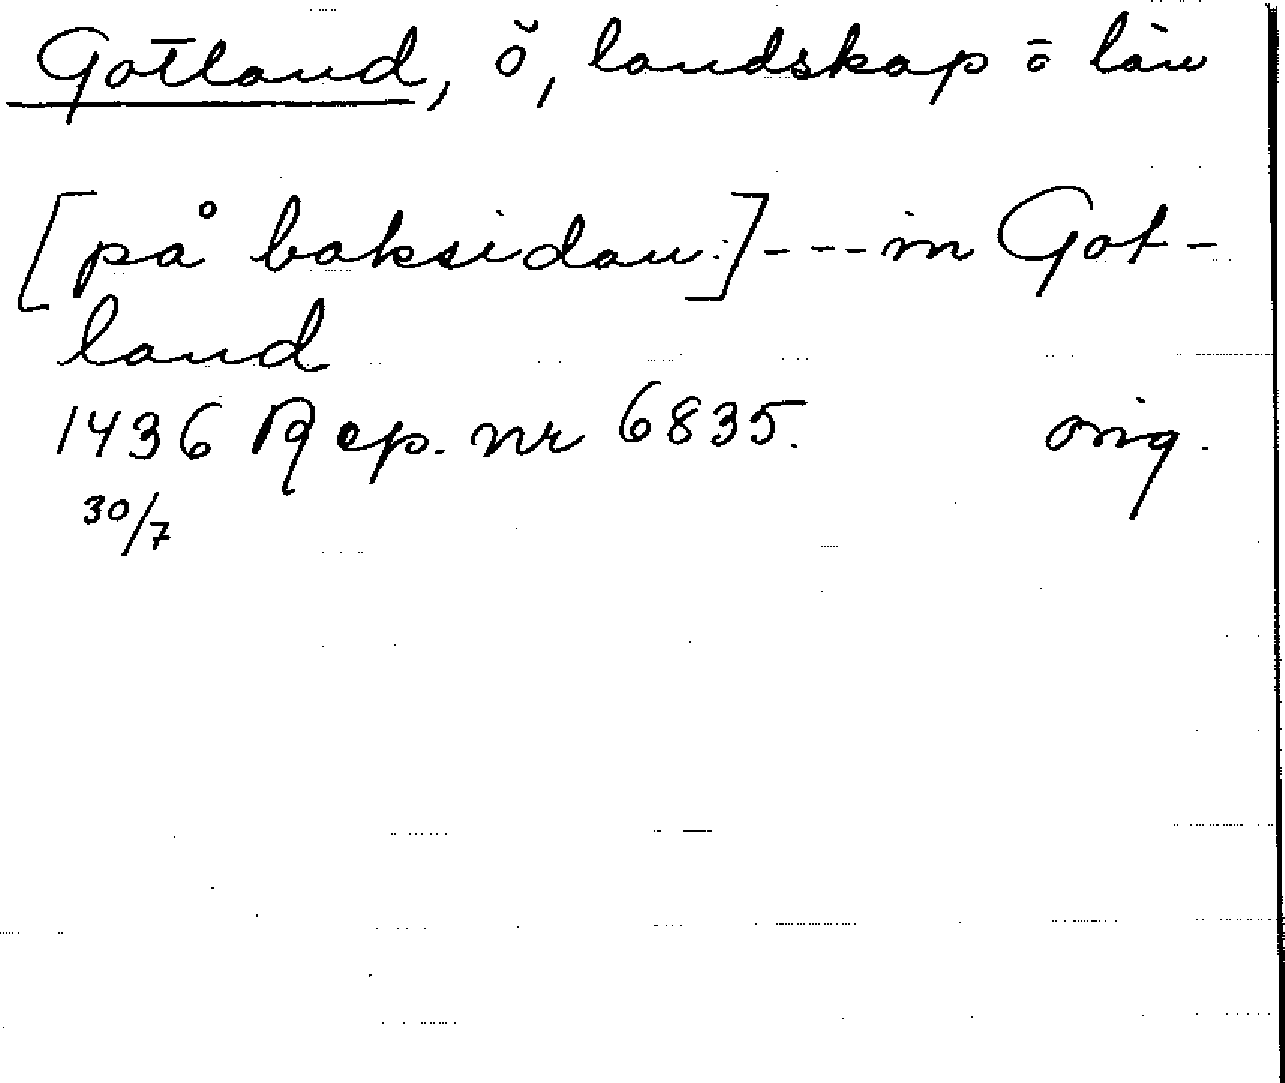 Gotland, ö, landskap o län
[på baksidan:]---in Got-
land
1436 Rep. nr 6835. orig.
30/7